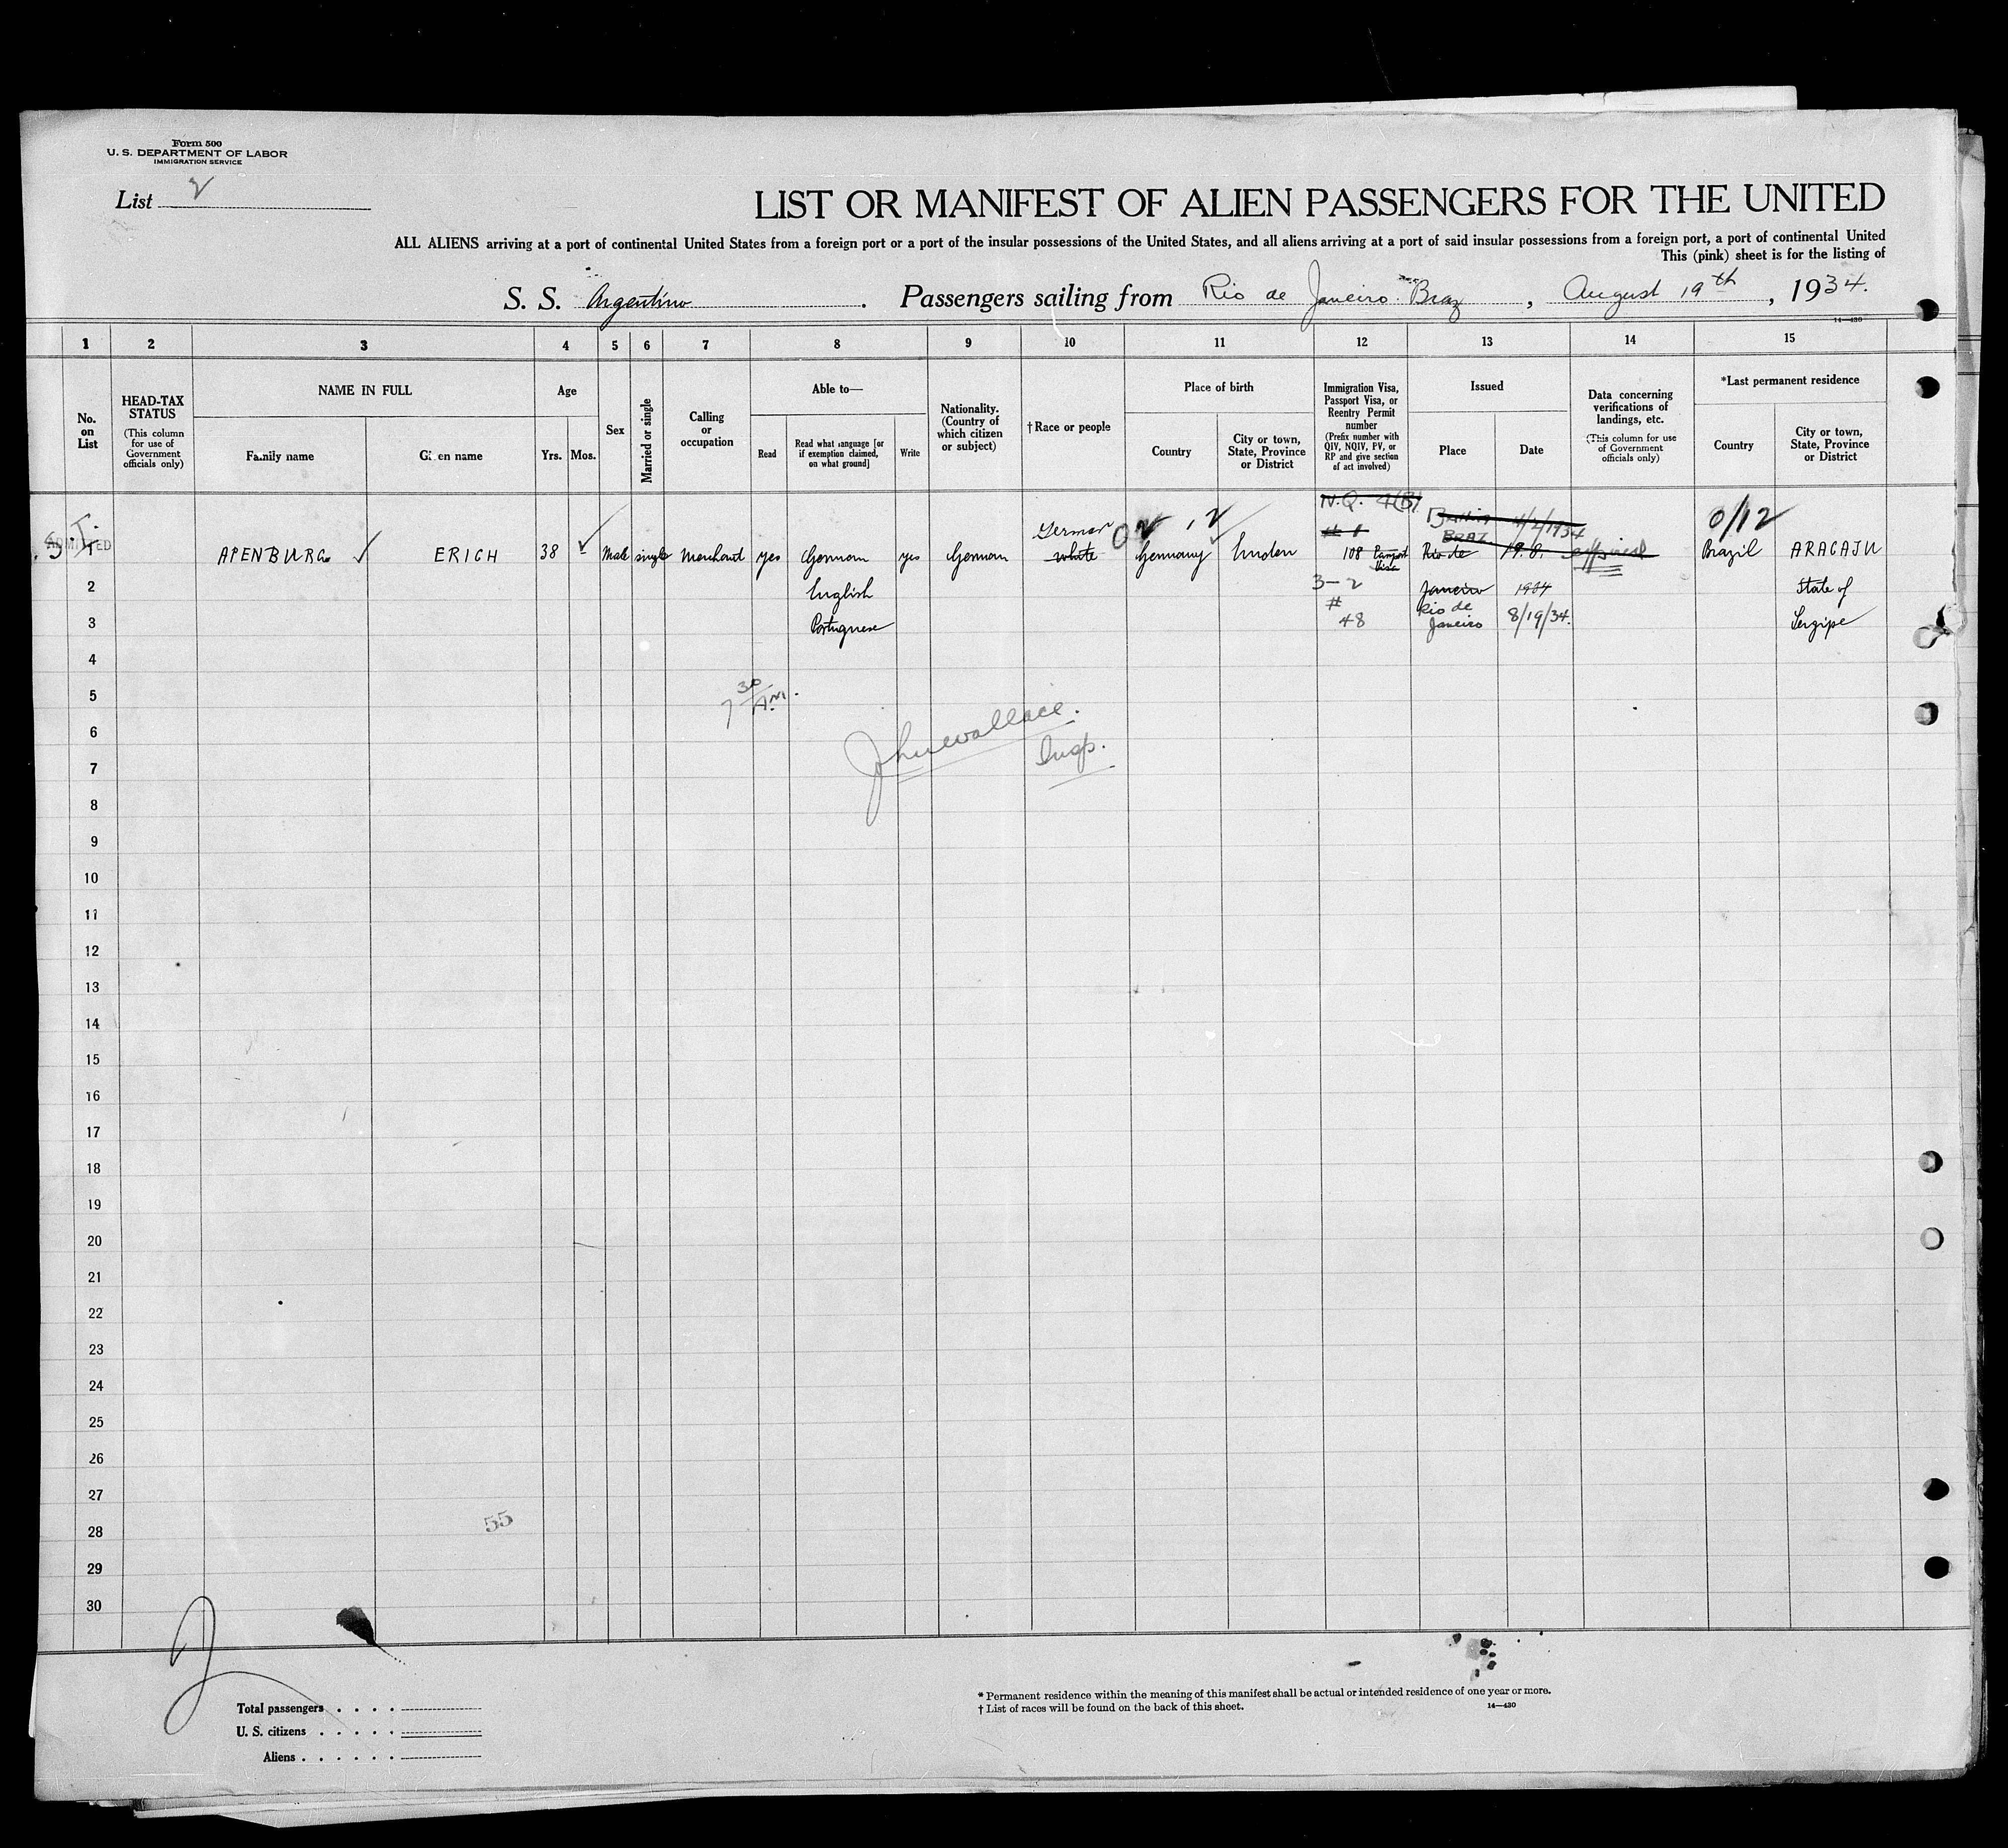 Form 500
U. S. DEPARTMENT OF LABOR
IMMIGRATION SERVICE
List 2
LIST OR MANIFEST OF ALIEN PASSENGERS FOR THE UNITED
ALL ALIENS arriving at a port of continental United States from a foreign port or a port of the insular possessions of the United States, and all aliens arriving at a port of said insular possessions from a foreign port, a port of continental United
This (pink) sheet is for the listing of
S. S. Argentino. Passengers sailing from Rio de Janeiro Braz, August 19th, 1934.
14—430
1 2 3 4 5 6 7 8 9 10 11 12 13 14 15
No. on List
HEAD-TAX STATUS
(This column for use of Government officials only)
NAME IN FULL
Family name
Given name
Age
Yrs. Mos.
Sex
Married or single
Calling or occupation
Able to—
Read
Read what language [or if exemption claimed, on what ground]
Write
Nationality. (Country of which citizen or subject)
†Race or people
Place of birth
Country
City or town, State, Province or District
Immigration Visa, Passport Visa, or Reentry Permit number
(Prefix number with QIV, NQIV, PV, or RP and give section of act involved)
Issued
Place
Date
Data concerning verifications of landings, etc.
(This column for use of Government officials only)
*Last permanent residence
Country
City or town, State, Province or District
N.Q. 4(B)
German 0/12
ADMITTED 1 APENBURG ERICH 38 Male single Merchant yes German yes German white Germany Linden 108 Passport Visa Rio de 19.8. expired Brazil ARACAJU
2 English 3-2 Janeiro 1934 State of
3 Portuguese # 48 Rio de Janeiro 8/19/34. Sergipe
4
5 7 30 AM.
6 John Wallace.
7 Insp.
8
9
10
11
12
13
14
15
16
17
18
19
20
21
22
23
24
25
26
27
28 55
29
30
Total passengers
U. S. citizens
Aliens
* Permanent residence within the meaning of this manifest shall be actual or intended residence of one year or more.
† List of races will be found on the back of this sheet.
14—430